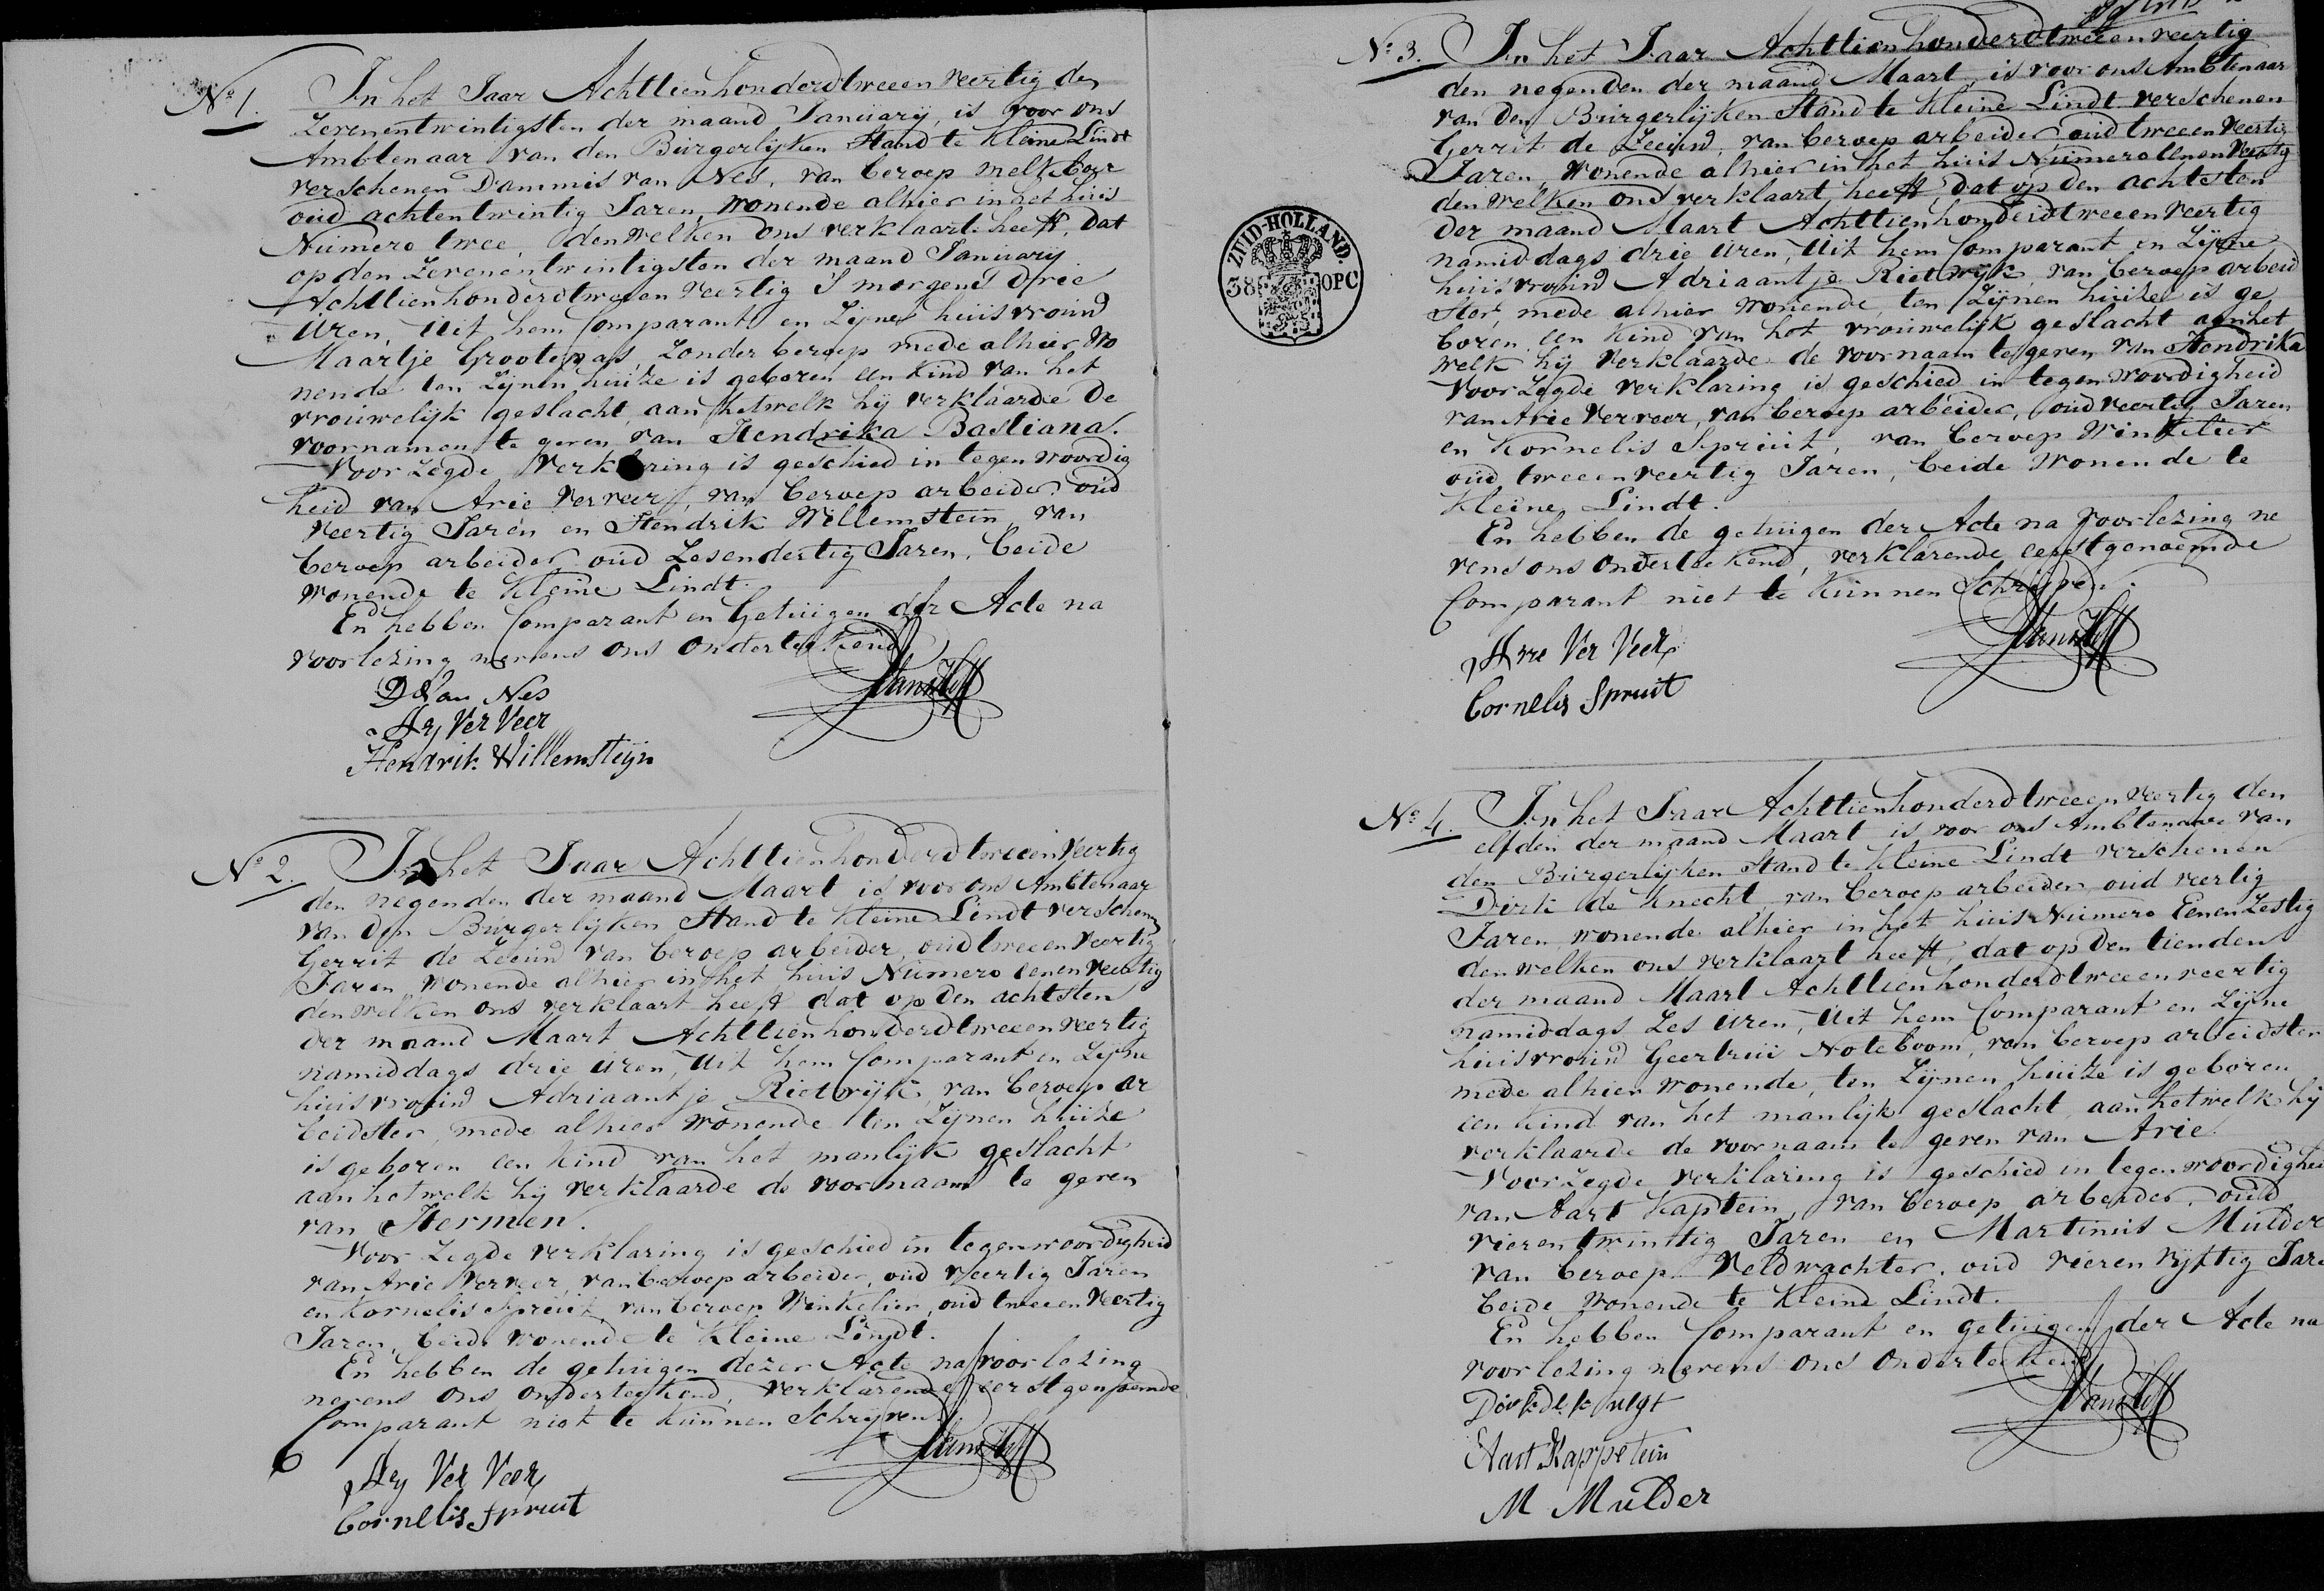 No 1.
In het Jaar Achttienhonderdtweeenveertig den
Zevenentwintigsten der maand Januarij, is voor ons
Ambtenaar van den Burgerlijken Stand te Kleine Lindt
verschenen Dammis van Nes, van beroep melkboer
oud achtentwintig Jaren, wonende alhier in het huis
Numero twee, denwelken ons verklaart heeft, dat
op den Zevenentwintigsten der maand Januarij
Achttienhonderdtweeenveertig S morgens drie
Uren, Uit hem Comparant en Zijne huisvrouw
Maartje Grootenas, Zonder beroep mede alhier Wo
nende ten Zijnen huize is geboren een Kind van het
vrouwelijk geslacht aan hetwelk hij verklaarde De
voornamen te geven van Hendrika Bastiana.
Voorzegde Verklaring is geschied in tegenwoordig
heid van Arie Verveer, van beroep arbeider oud
Veertig Jaren en Hendrik Willemstein van
beroep arbeider oud Zesendertig Jaren, beide
wonende te Kleine Lindt.
En hebben Comparant en Getuigen der Acte na
voorlezing nevens ons onderteekend
D Van Nes
Ary Ver Veer
Hendrik Willemsteijn
No 2.
In het Jaar Achttienhonderdtweeenveertig
den negenden der maand Maart is voor ons Ambtenaar
van den Burgerlijken Stand te Kleine Lindt verschenen
Gerrit de Leeuw van beroep arbeider, oud tweeenveertig
Jaren, wonende alhier in het huis Numero eenenveertig
denwelken ons verklaart heeft dat op den achtsten
der maand Maart Achttienhonderdtweeenveertig
namiddags drie uren, Uit hem Comparant en Zijne
huisvrouw Adriaantje Rietwijk, van beroep ar
beidster, mede alhier wonende ten Zijnen huize
is geboren een Kind van het manlijk geslacht
aan hetwelk hij verklaarde de voornaam te geven
van Hermen.
Voorzegde verklaring is geschied in tegenwoordigheid
van Arie Verveer, van beroep arbeider, oud veertig Jaren
en Kornelis Spruit, van beroep Winkelier, oud tweeenveertig
Jaren, beide wonende te Kleine Lindt.
En hebben de getuigen dezer Acte na voorlezing
nevens ons onderteekend, verklarende eerstgenoemde
Comparant niet te kunnen Schrijven.
Ary Ver Veer
Cornelis Spruit
ZUID-HOLLAND.
38 OPC
No 3.
In het Jaar Achttienhonderdtweeenveertig
den negenden der maand Maart, is voor ons Ambtenaar
van den Burgerlijken Stand te Kleine Lindt verschenen
Gerrit de Leeuw, van beroep arbeider, oud tweeenveertig
Jaren, Wonende alhier in het huis Numero eenenveertig
denwelken ons verklaart heeft, dat op den achtsten
der maand Maart Achttienhonderdtweeenveertig
namiddags drie Uren, Uit hem Comparant en Zijne
huisvrouw Adriaantje Rietwijk, van beroep arbeid
ster, mede alhier wonende, ten Zijnen huize is ge
boren een Kind van het vrouwelijk geslacht aan het
welk hij verklaarde de voornaam te geven van Hendrika
Voorzegde verklaring is geschied in tegenwoordigheid
van Arie Verveer, van beroep arbeider, oud veertig Jaren
en Kornelis Spruit, van beroep Winkelier
oud tweeenveertig Jaren, beide wonende te
Kleine Lindt.
En hebben de getuigen der Acte na voorlezing ne
vens ons onderteekend, verklarende eerstgenoemde
Comparant niet te kunnen Schrijven.
Arie Ver Veer
Cornelis Spruit
No 4.
In het Jaar Achttienhonderdtweeenveertig den
elfden der maand Maart is voor ons Ambtenaar van
den Burgerlijken Stand te Kleine Lindt verschenen
Dirk de Knecht, van beroep arbeider, oud veertig
Jaren, wonende alhier in het huis Numero Eenenzestig
denwelken ons verklaart heeft, dat op den tienden
der maand Maart Achttienhonderdtweeenveertig
namiddags Zes Uren, Uit hem Comparant en Zijne
huisvrouw Geertrui Noteboom, van beroep arbeidster
mede alhier wonende, ten Zijnen huize is geboren
een Kind van het manlijk geslacht, aan hetwelk hij
verklaarde de voornaam te geven van Arie.
Voorzegde verklaring is geschied in tegenwoordighei
van Aart Kaptein, van beroep arbeider, oud
vierentwinttig Jaren en Martinus Mulder
van beroep Veldwachter, oud vierenvijftig Jare
beide wonende te Kleine Lindt.
En hebben Comparant en getuigen der Acte na
voorlezing nevens ons onderteekend
Dirk de knegt
Aart Kappetein
M Mulder